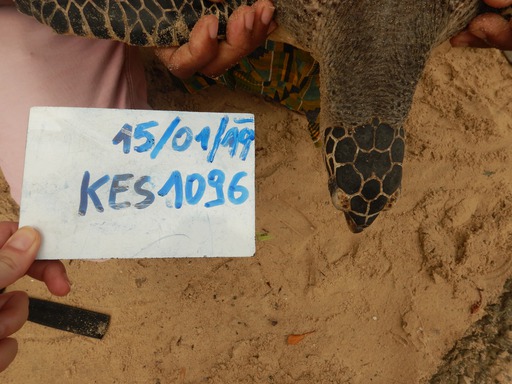 15/01/19
KES1096